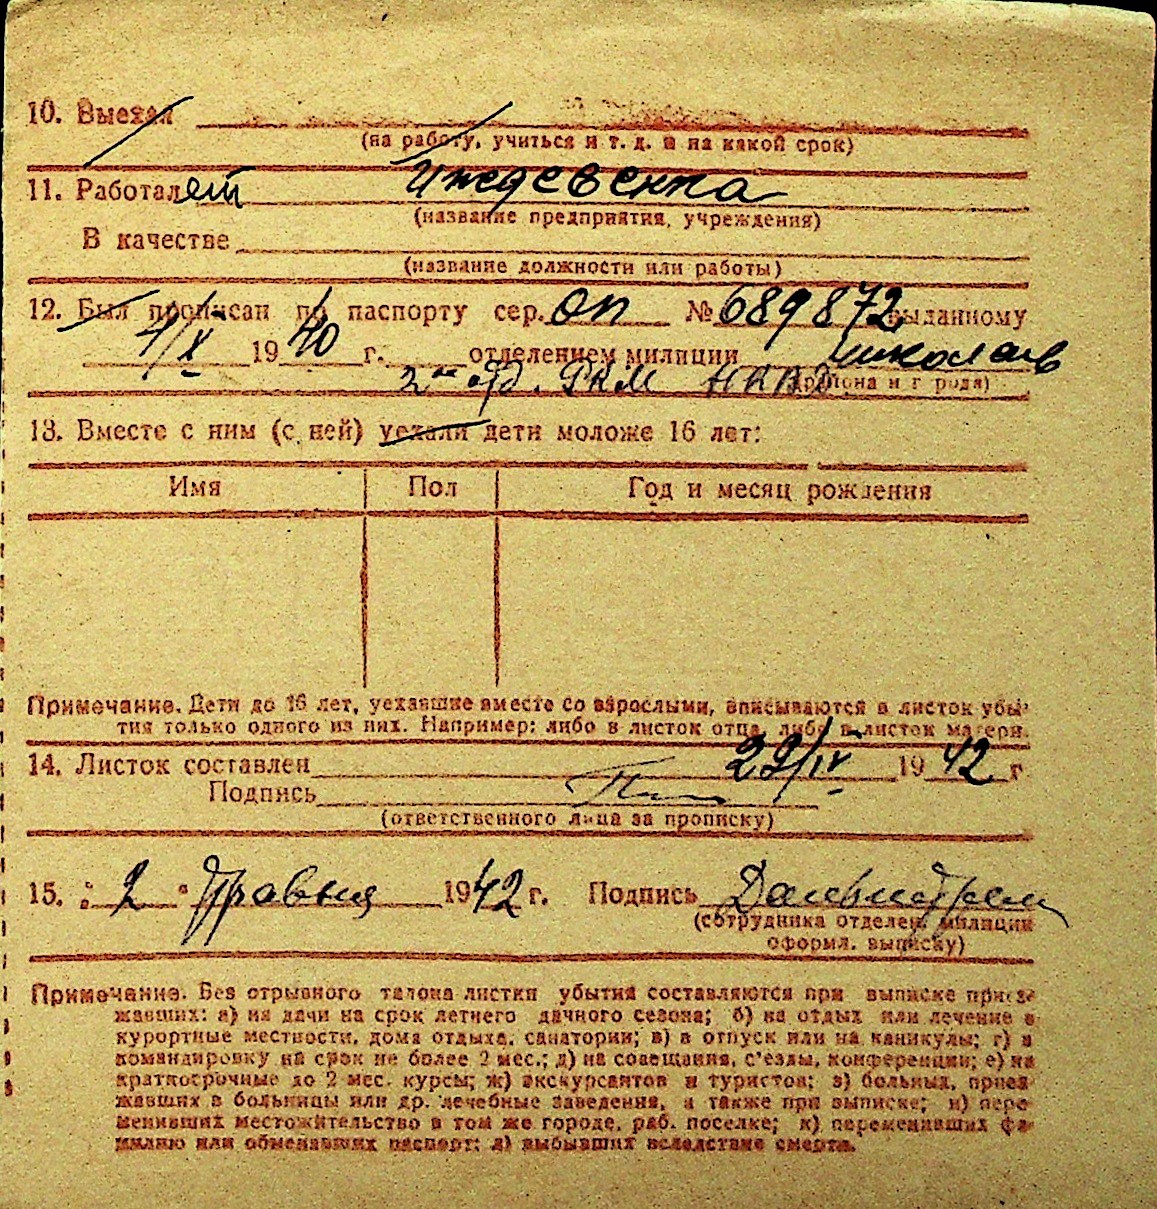 10. Выехал
(на работу, учиться и т. д. и на какой срок)
11. Работал ет Иждевенка
(название предприятия, учреждения)
В качестве
(название должности или работы)
12. Был прописан по паспорту сер. ОП № 689872 выданному
4/X 1940 г. отделением милиции Николаев
2 отд. РКМ НКВД (района и г рода)
13. Вместе с ним (с ней) уехали дети моложе 16 лет:
Имя Пол Год и месяц рождения
Примечание. Дети до 16 лет, уехавшие вместе со взрослыми, вписываются в листок убы-
тия только одного из них. Например: либо в листок отца, либо в листок матери.
14. Листок составлен 29/IV 1942 г
Подпись
(ответственного лица за прописку)
15. " 2 " Травня 1942 г. Подпись
(сотрудника отделен. милиции
оформл. выписку)
Примечание. Без отрывного талона листки убытия составляются при выписке приез-
жавших: а) на дачи на срок летнего дачного сезона; б) на отдых или лечение в
курортные местности, дома отдыха, санатории; в) в отпуск или на каникулы; г) в
командировку на срок не более 2 мес.; д) на совещания, с'езды, конференции; е) на
краткосрочные до 2 мес. курсы; ж) экскурсантов и туристов; з) больных, приез-
жавших в больницы или др. лечебные заведения, а также при выписке; и) пере-
менивших местожительство в том же городе, раб. поселке; к) переменивших фа-
милию или обменявших паспорт; л) выбывших вследствие смерти.